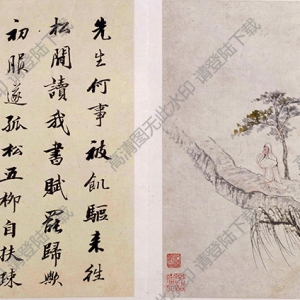 先生何事被飢驅來往
松間讀我書賦罷歸歟
初服遂孤松五柳自扶疎
高清图无此水印 请登陆下载